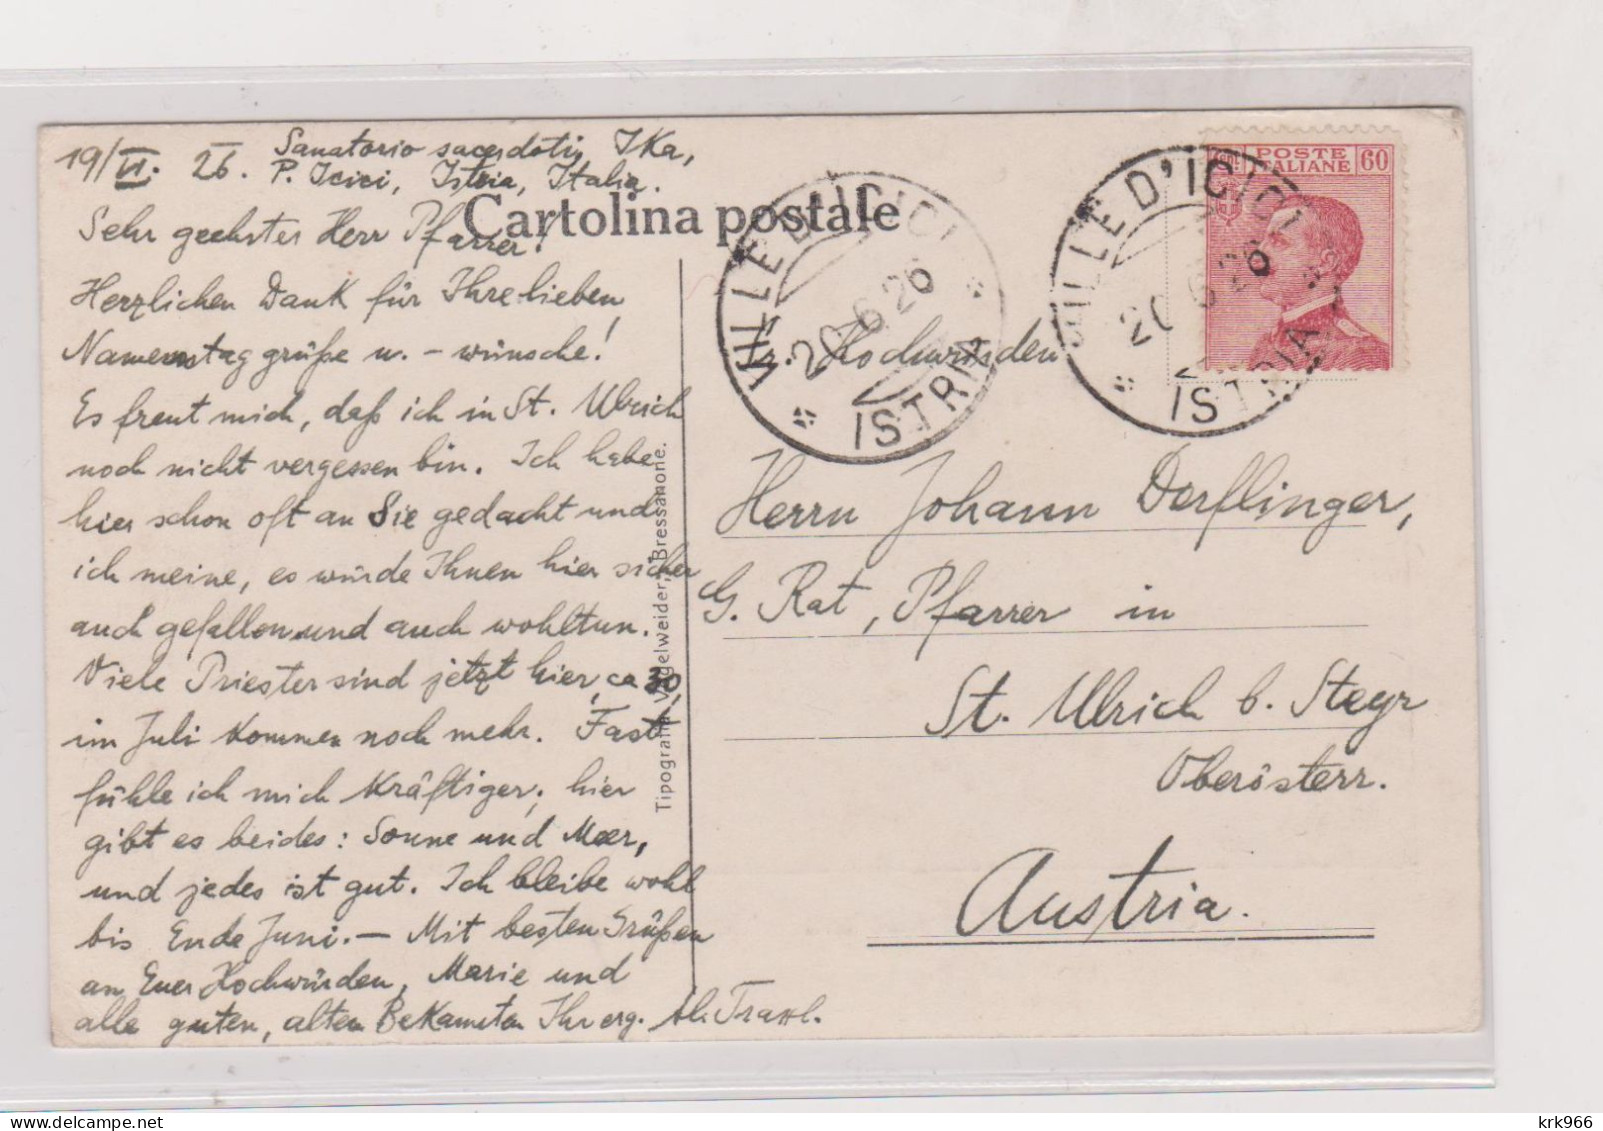 19/VI. 26. Sanatorio sacerdoti, IKa,
P. Icici, Istria, Italia.
Cartolina postale
Sehr geehrter Herr Pfarrer!
Herzlichen Dank für Ihre lieben
Namenstagsgrüße u. – wünsche!
Es freut mich, daß ich in St. Ulrich
noch nicht vergessen bin. Ich habe
hier schon oft an Sie gedacht und
ich meine, es würde Ihnen hier sicher
auch gefallen und auch wohltun.
Viele Priester sind jetzt hier, ca 30,
im Juli kommen noch mehr. Fast
fühle ich mich kräftiger; hier
gibt es beides: Sonne und Meer,
und jedes ist gut. Ich bleibe wohl
bis Ende Juni. — Mit besten Grüßen
an Euer Hochwürden, Marie und
alle guten, alten Bekannten Ihr erg.
Tipografia Vogelweider, Bressanone.
VILLE D'ICICI
20 6 26
ISTRIA
VILLE D'ICICI
20 6 26
ISTRIA
POSTE
ITALIANE
60
Sr. Hochwürden
Herrn Johann Derflinger,
G. Rat, Pfarrer in
St. Ulrich b. Steyr
Oberösterr.
Austria.
krk966